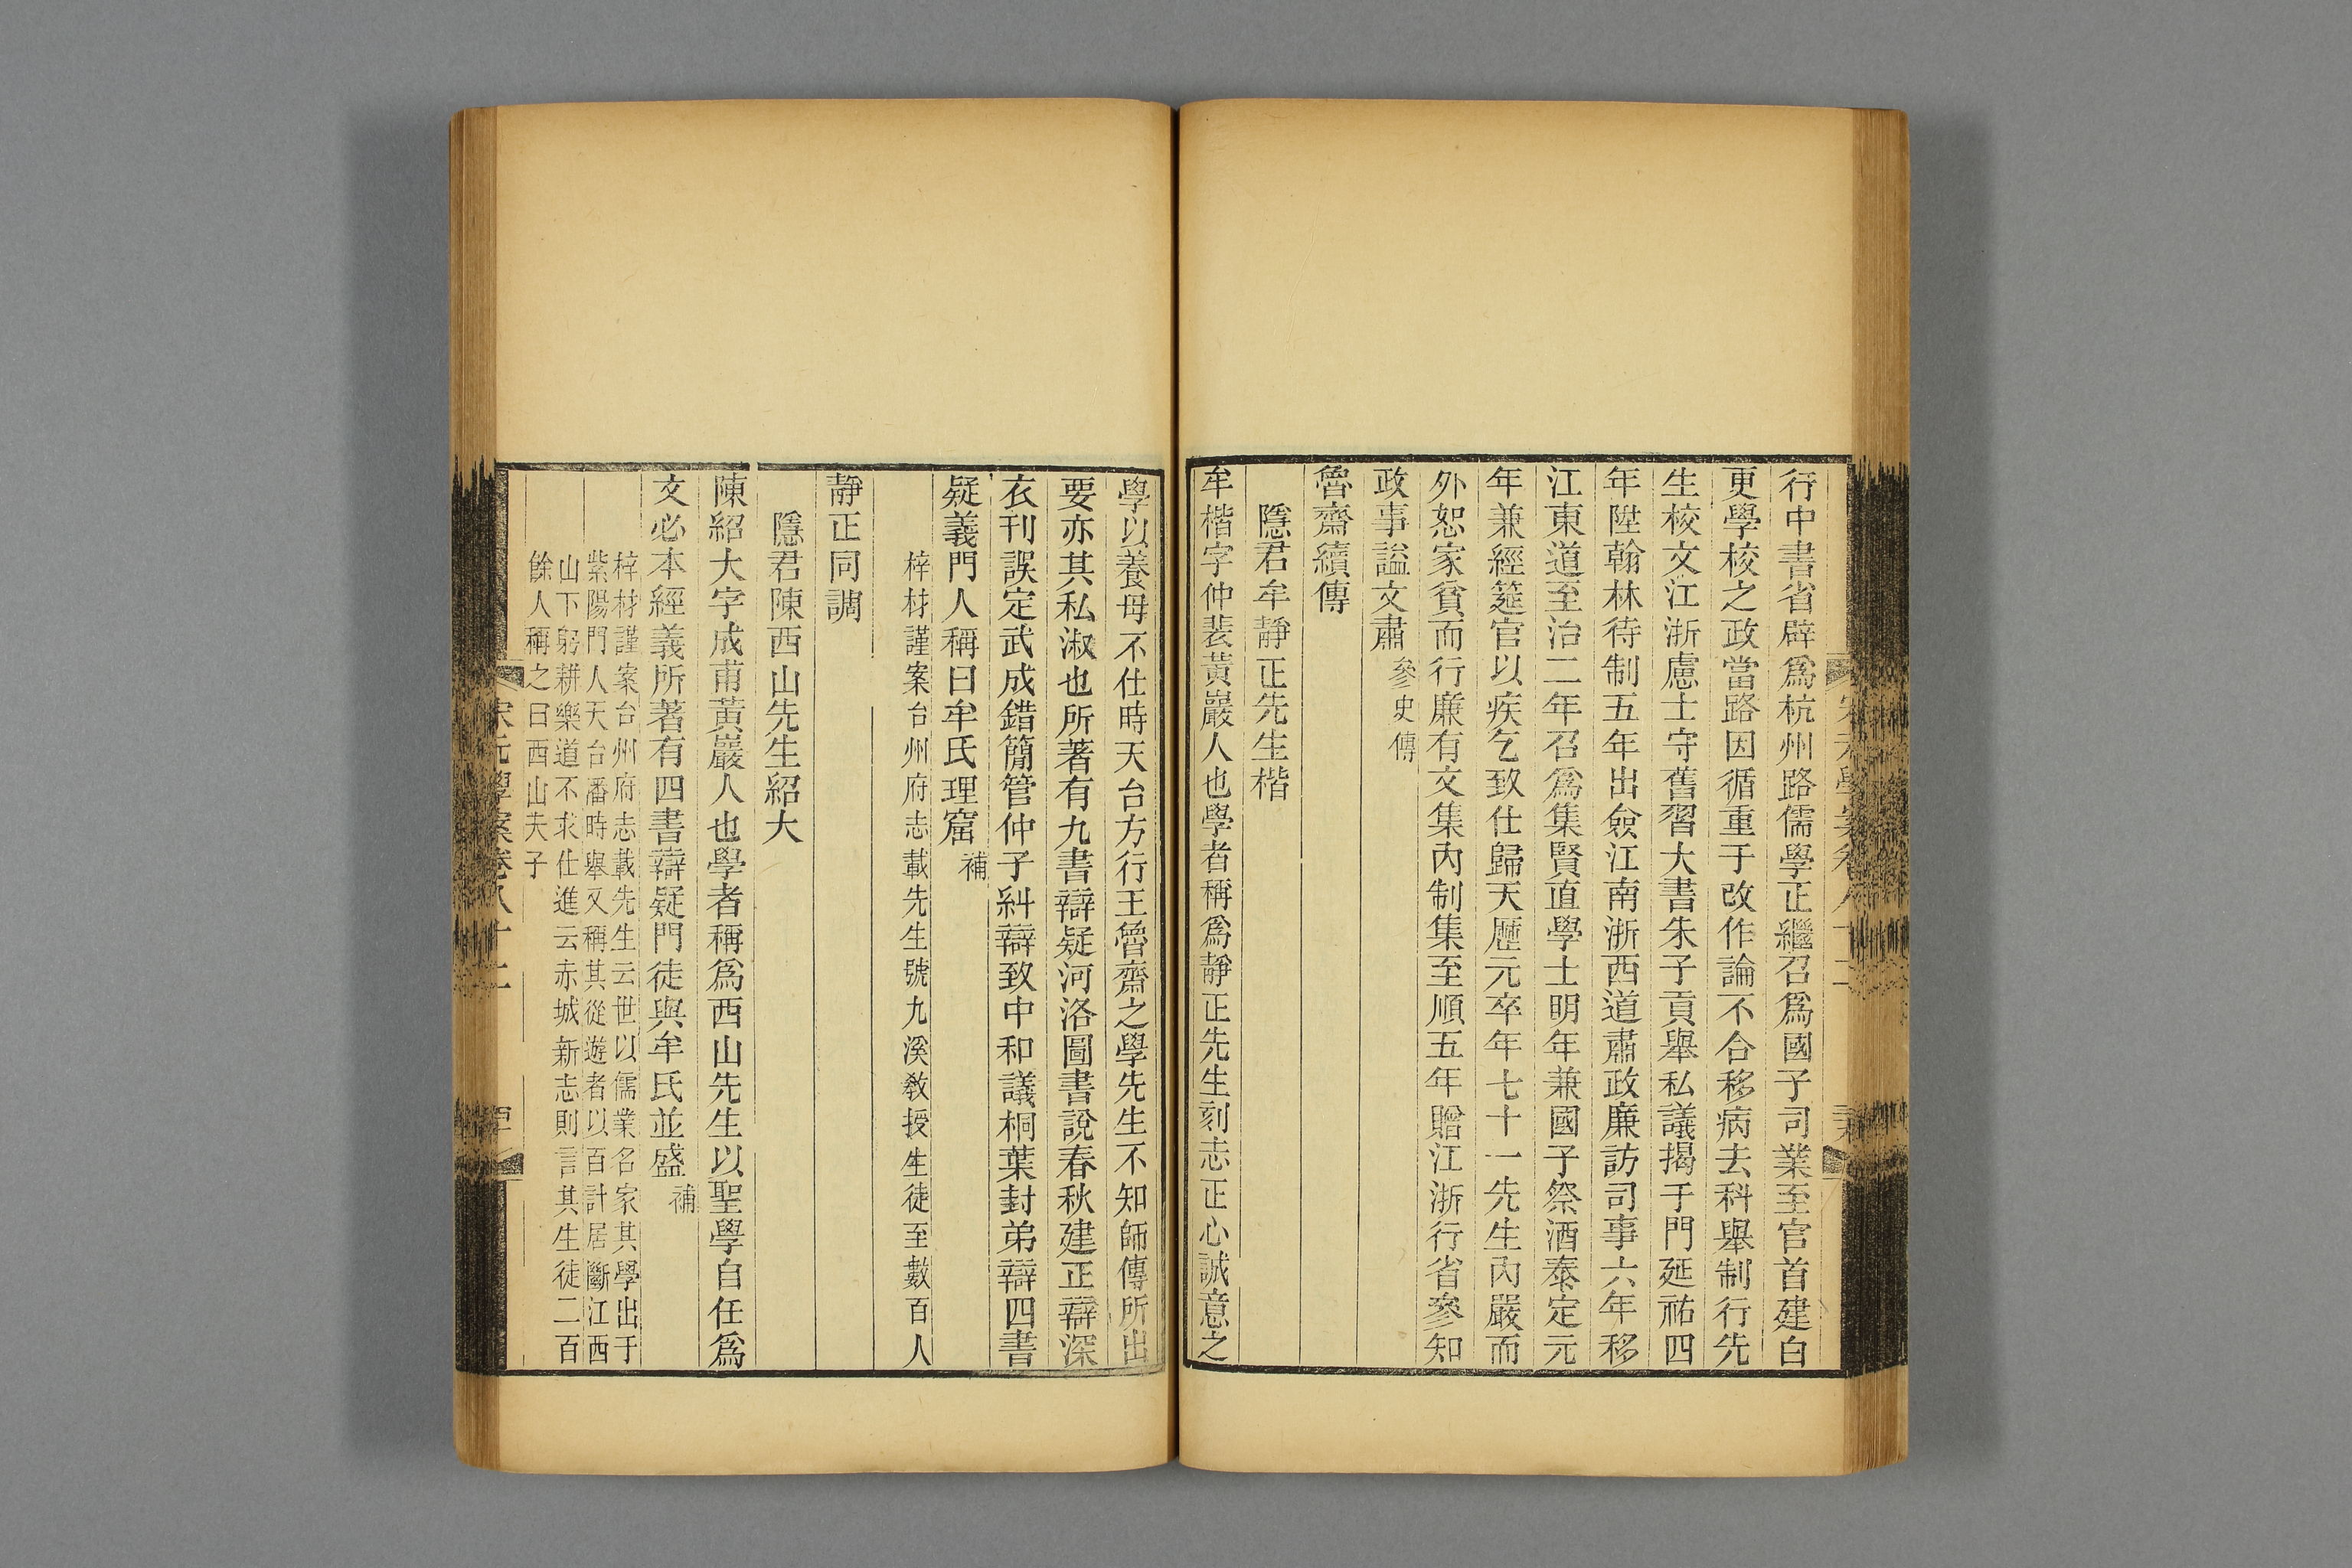 行中書省辟爲杭州路儒學正繼召爲國子司業至官首建白
更學校之政當路因循重于改作論不合移病去科舉制行先
生校文江浙慮士守舊習大書朱子貢舉私議揭于門延祐四
年陞翰林待制五年出僉江南浙西道肅政廉訪司事六年移
江東道至治二年召爲集賢直學士明年兼國子祭酒泰定元
年兼經筵官以疾乞致仕歸天曆元卒年七十一先生內嚴而
外恕家貧而行廉有文集內制集至順五年贈江浙行省參知
政事諡文肅參史傳
魯齋續傳
隱君牟靜正先生楷
牟楷字仲裴黃巖人也學者稱爲靜正先生刻志正心誠意之
學以養母不仕時天台方行王魯齋之學先生不知師傳所出
要亦其私淑也所著有九書辯疑河洛圖書說春秋建正辯深
衣刊誤定武成錯簡管仲子糾辯致中和議桐葉封弟辯四書
疑義門人稱曰牟氏理窟補
梓材謹案台州府志載先生號九溪敎授生徒至數百人
靜正同調
隱君陳西山先生紹大
陳紹大字成甫黃巖人也學者稱爲西山先生以聖學自任爲
文必本經義所著有四書辯疑門徒與牟氏並盛補
梓材謹案台州府志載先生云世以儒業名家其學出于
紫陽門人天台潘時舉又稱其從遊者以百計居斷江西
山下躬耕樂道不求仕進云赤城新志則言其生徒二百
餘人稱之曰西山夫子
宋元學案卷八十二